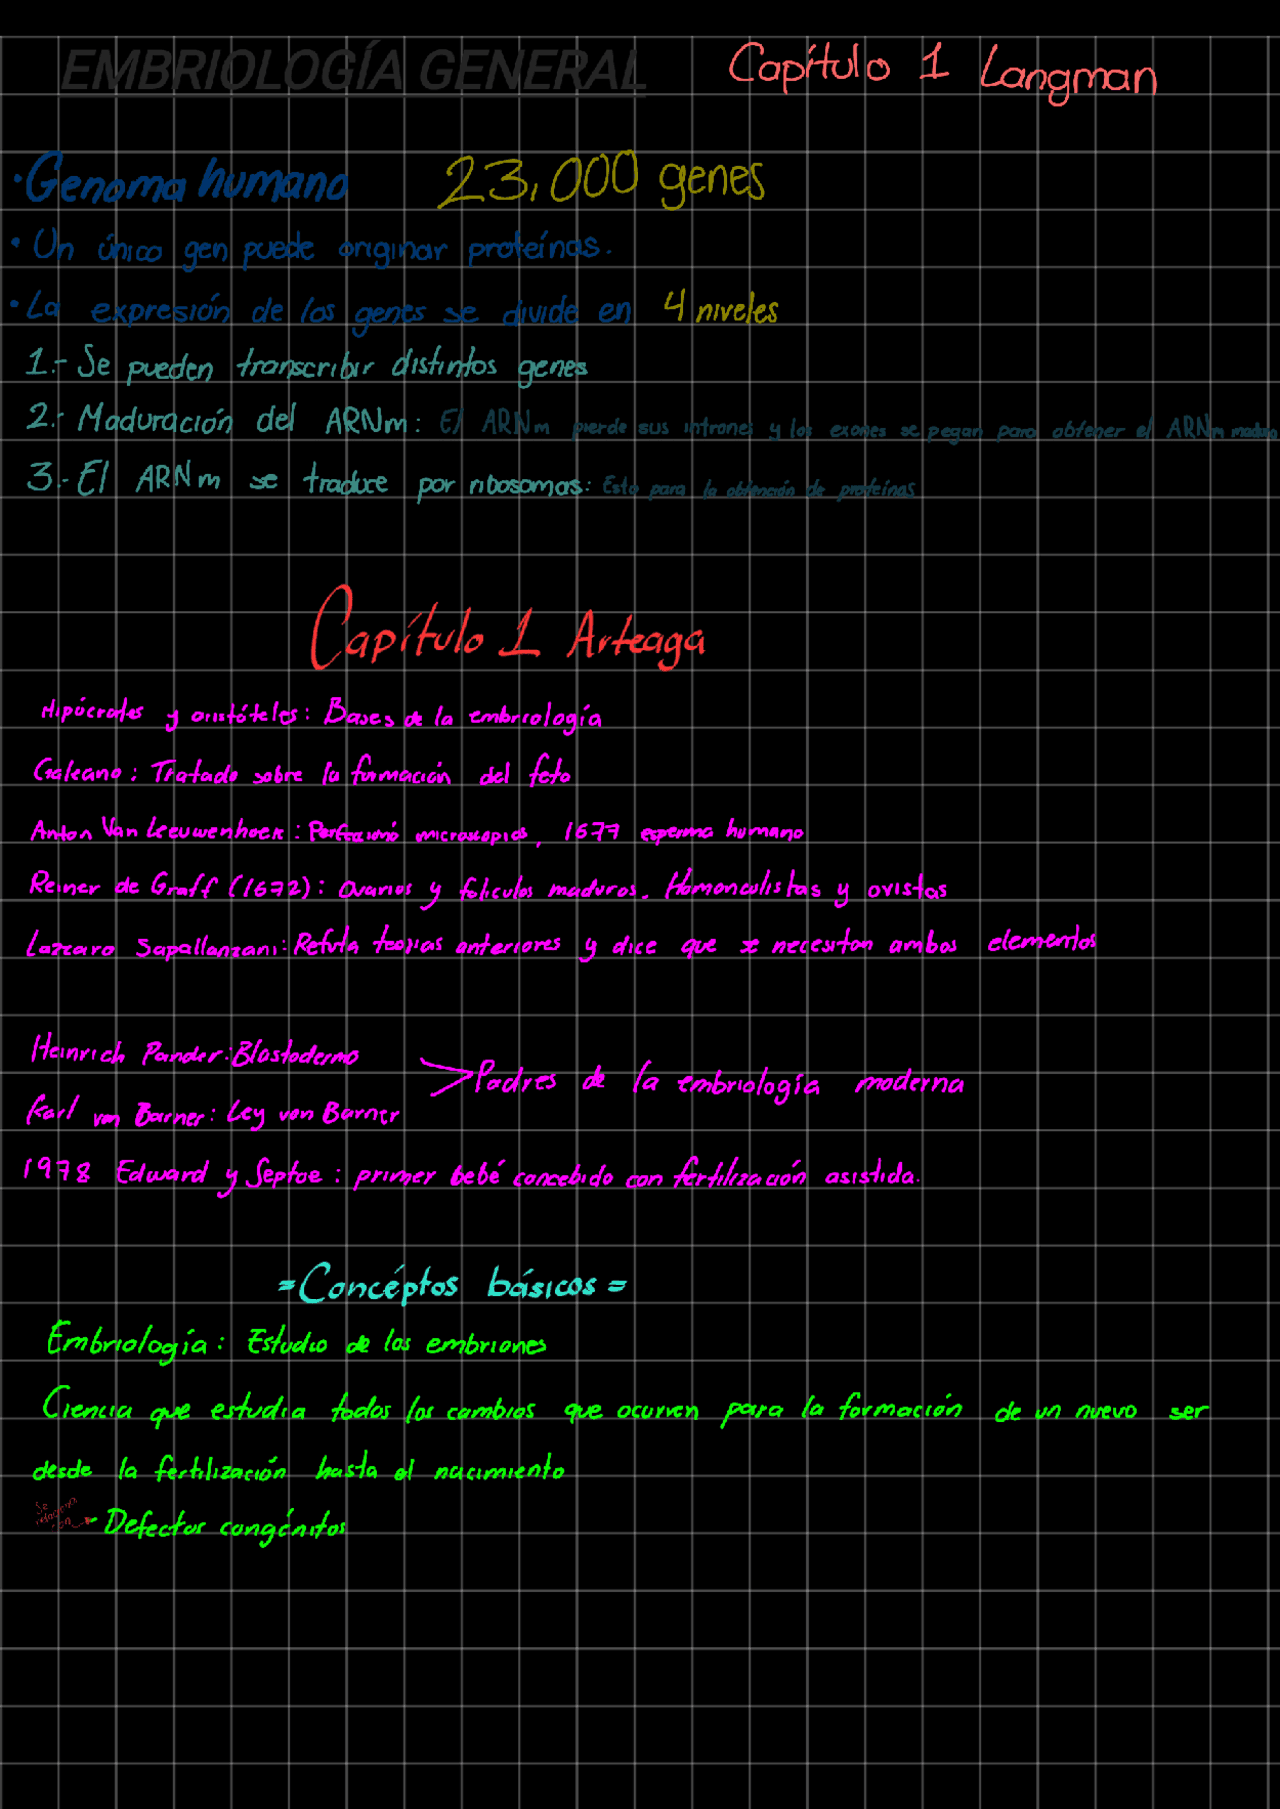 EMBRIOLOGÍA GENERAL Capítulo 1 Langman
• Genoma humano 23,000 genes
• Un único gen puede originar proteínas.
• La expresión de los genes se divide en 4 niveles
1.- Se pueden transcribir distintos genes
2.- Maduración del ARNm: El ARNm pierde sus intrones y los exones se pegan para obtener el ARNm maduro
3.- El ARNm se traduce por ribosomas: Esto para la obtención de proteínas
Capítulo 1 Arteaga
Hipócrates y aristóteles: Bases de la embriología
Galeano: Tratado sobre la formación del feto
Anton Van Leeuwenhoek: Perfeccionó microscopios, 1677 esperma humano
Reiner de Graff (1672): Ovarios y folículos maduros. Homonculistas y ovistas
Lazzaro Sapallanzani: Refuta teorías anteriores y dice que se necesitan ambos elementos
Heinrich Pander: Blastodermo
> Padres de la embriología moderna
Karl von Barner: Ley von Barner
1978 Edward y Septoe: primer bebé concebido con fertilización asistida.
= Concéptos básicos =
Embriología: Estudio de los embriones
Ciencia que estudia todos los cambios que ocurren para la formación de un nuevo ser
desde la fertilización hasta el nacimiento
Se relaciona con - Defectos congénitos